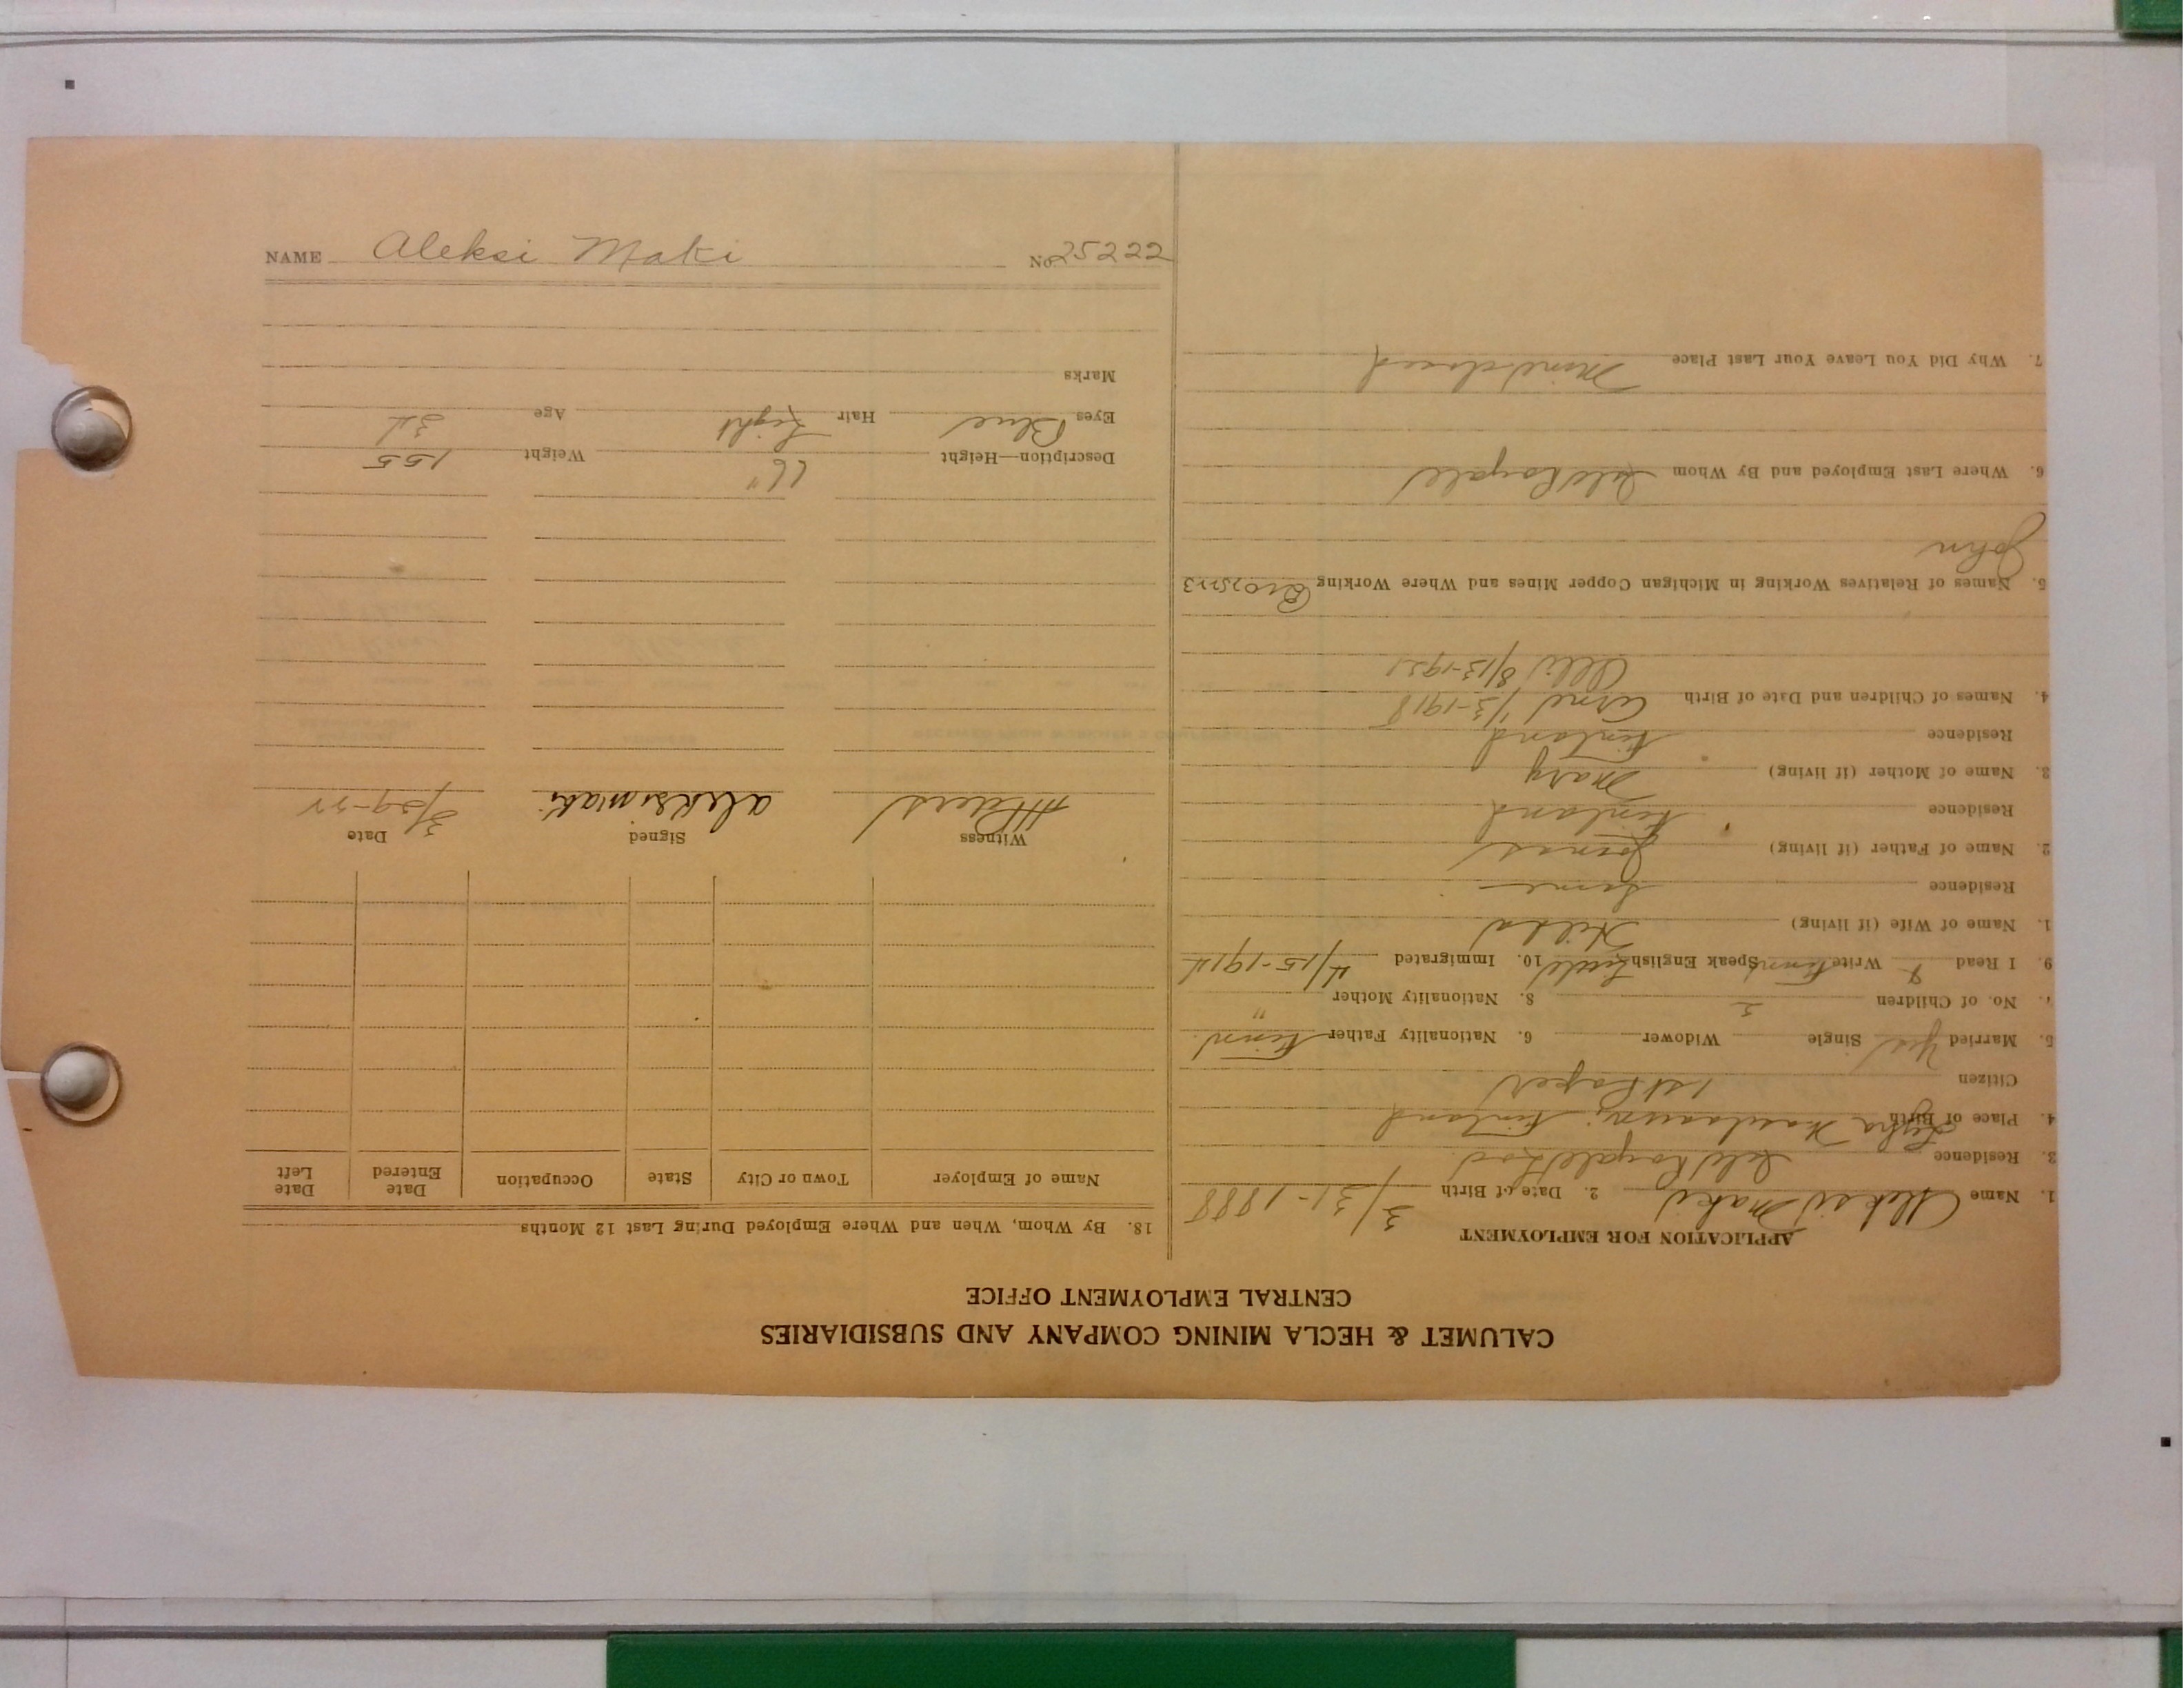 CALUMET & HECLA MINING COMPANY AND SUBSIDIARIES
CENTRAL EMPLOYMENT OFFICE
APPLICATION FOR EMPLOYMENT
1. Name Aleksi Maki 2. Date of Birth 3/31-1888
3. Residence Isle Royale Loc
4. Place of Birth Finland
Citizen 1st Paper
5. Married Yes Single Widower 6. Nationality Father Finn
7. No. of Children 2 8. Nationality Mother "
9. I Read & Write Finn Speak English Little 10. Immigrated 4/15-1914
1. Name of Wife (if living) Hilka
Residence Same
2. Name of Father (if living) Jonas
Residence Finland
3. Name of Mother (if living) Mary
Residence Finland
4. Names of Children and Date of Birth Arne 1/3-1918
8/13-1921
5. Names of Relatives Working in Michigan Copper Mines and Where Working
John
6. Where Last Employed and By Whom Isle Royale
7. Why Did You Leave Your Last Place Mine closed
18. By Whom, When and Where Employed During Last 12 Months
Name of Employer Town or City State Occupation Date Entered Date Left
Witness Signed Date
aleksi maki 3/29-22
Description—Height 66" Weight 155
Eyes Blue Hair Light Age 34
Marks
NAME Aleksi Maki No 25222